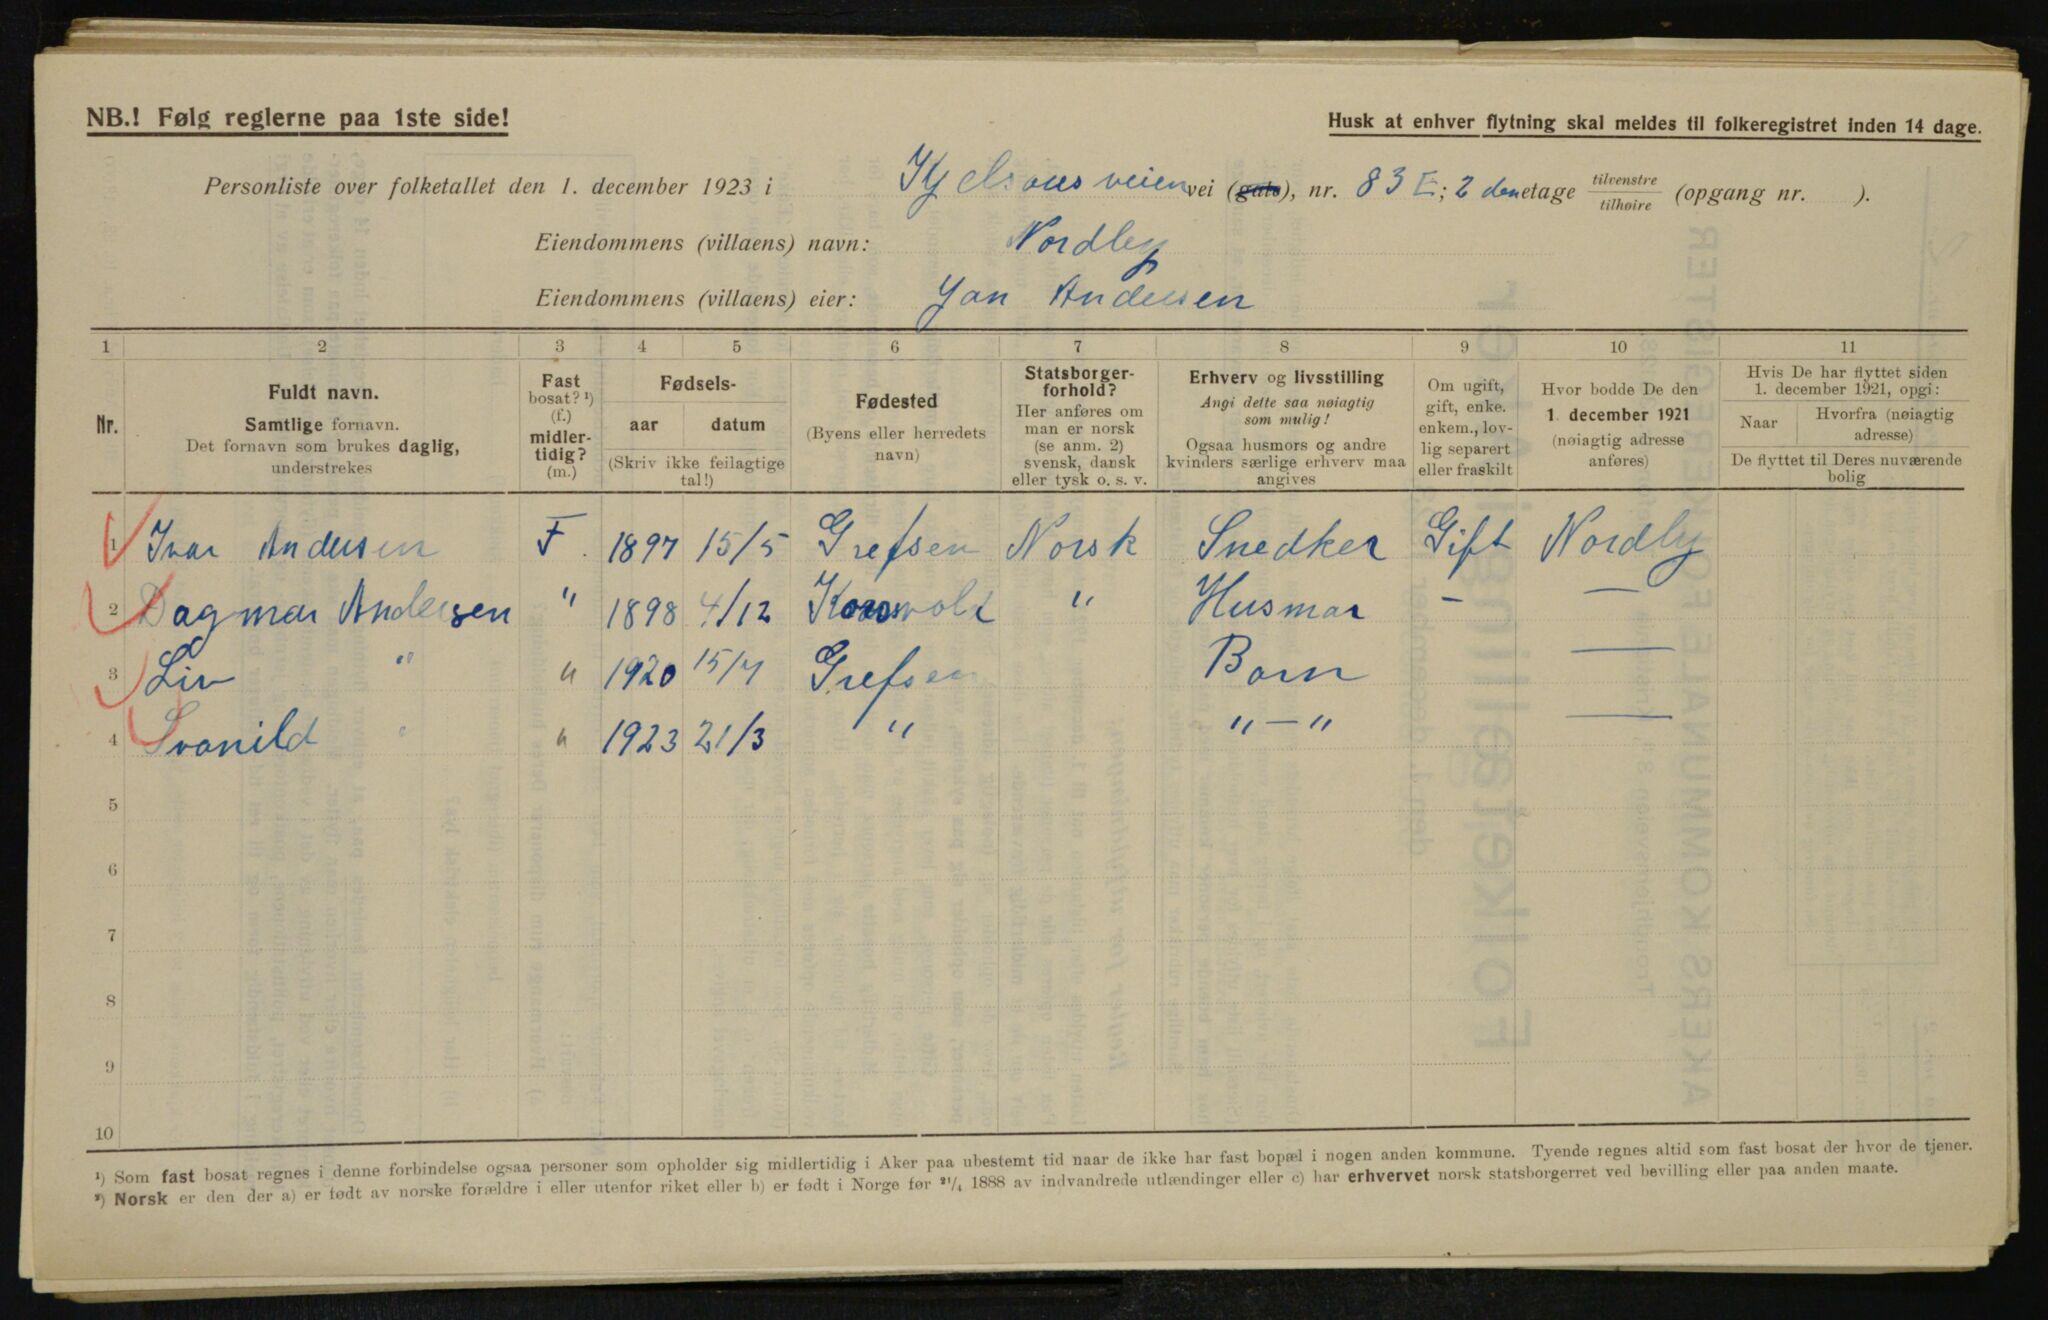 NB.! Følg reglerne paa 1ste side!
Husk at enhver flytning skal meldes til folkeregistret inden 14 dage.
Personliste over folketallet den 1. december 1923 i Kjelsaasveien vei (gate), nr. 83 E; 2 den etage tilvenstre tilhøire (opgang nr. ).
Eiendommens (villaens) navn: Nordby
Eiendommens (villaens) eier: Jan Andersen
1 2 3 4 5 6 7 8 9 10 11
Nr.
Fuldt navn.
Samtlige fornavn.
Det fornavn som brukes daglig,
understrekes
Fast
bosat? ¹)
(f.)
midler-
tidig?
(m.)
Fødsels-
aar datum
(Skriv ikke feilagtige
tal!)
Fødested
(Byens eller herredets
navn)
Statsborger-
forhold?
Her anføres om
man er norsk
(se anm. 2)
svensk, dansk
eller tysk o. s. v.
Erhverv og livsstilling
Angi dette saa nøiagtig
som mulig!
Ogsaa husmors og andre
kvinders særlige erhverv maa
angives
Om ugift,
gift, enke.
enkem., lov-
lig separert
eller fraskilt
Hvor bodde De den
1. december 1921
(nøiagtig adresse
anføres)
Hvis De har flyttet siden
1. december 1921, opgi:
Naar
Hvorfra (nøiagtig
adresse)
De flyttet til Deres nuværende
bolig
1 Ivar Andersen F. 1897 15/5 Grefsen Norsk Snedker Gift Nordby
2 Dagmar Andersen " 1898 4/12 " Husmar - —
3 Liv " " 1920 15/7 Grefsen Barn —
4 Svanild " " 1923 21/3 " "-" —
5
6
7
8
9
10
¹) Som fast bosat regnes i denne forbindelse ogsaa personer som opholder sig midlertidig i Aker paa ubestemt tid naar de ikke har fast bopæl i nogen anden kommune. Tyende regnes altid som fast bosat der hvor de tjener.
²) Norsk er den der a) er født av norske forældre i eller utenfor riket eller b) er født i Norge før ²¹/₄ 1888 av indvandrede utlændinger eller c) har erhvervet norsk statsborgerret ved bevilling eller paa anden maate.